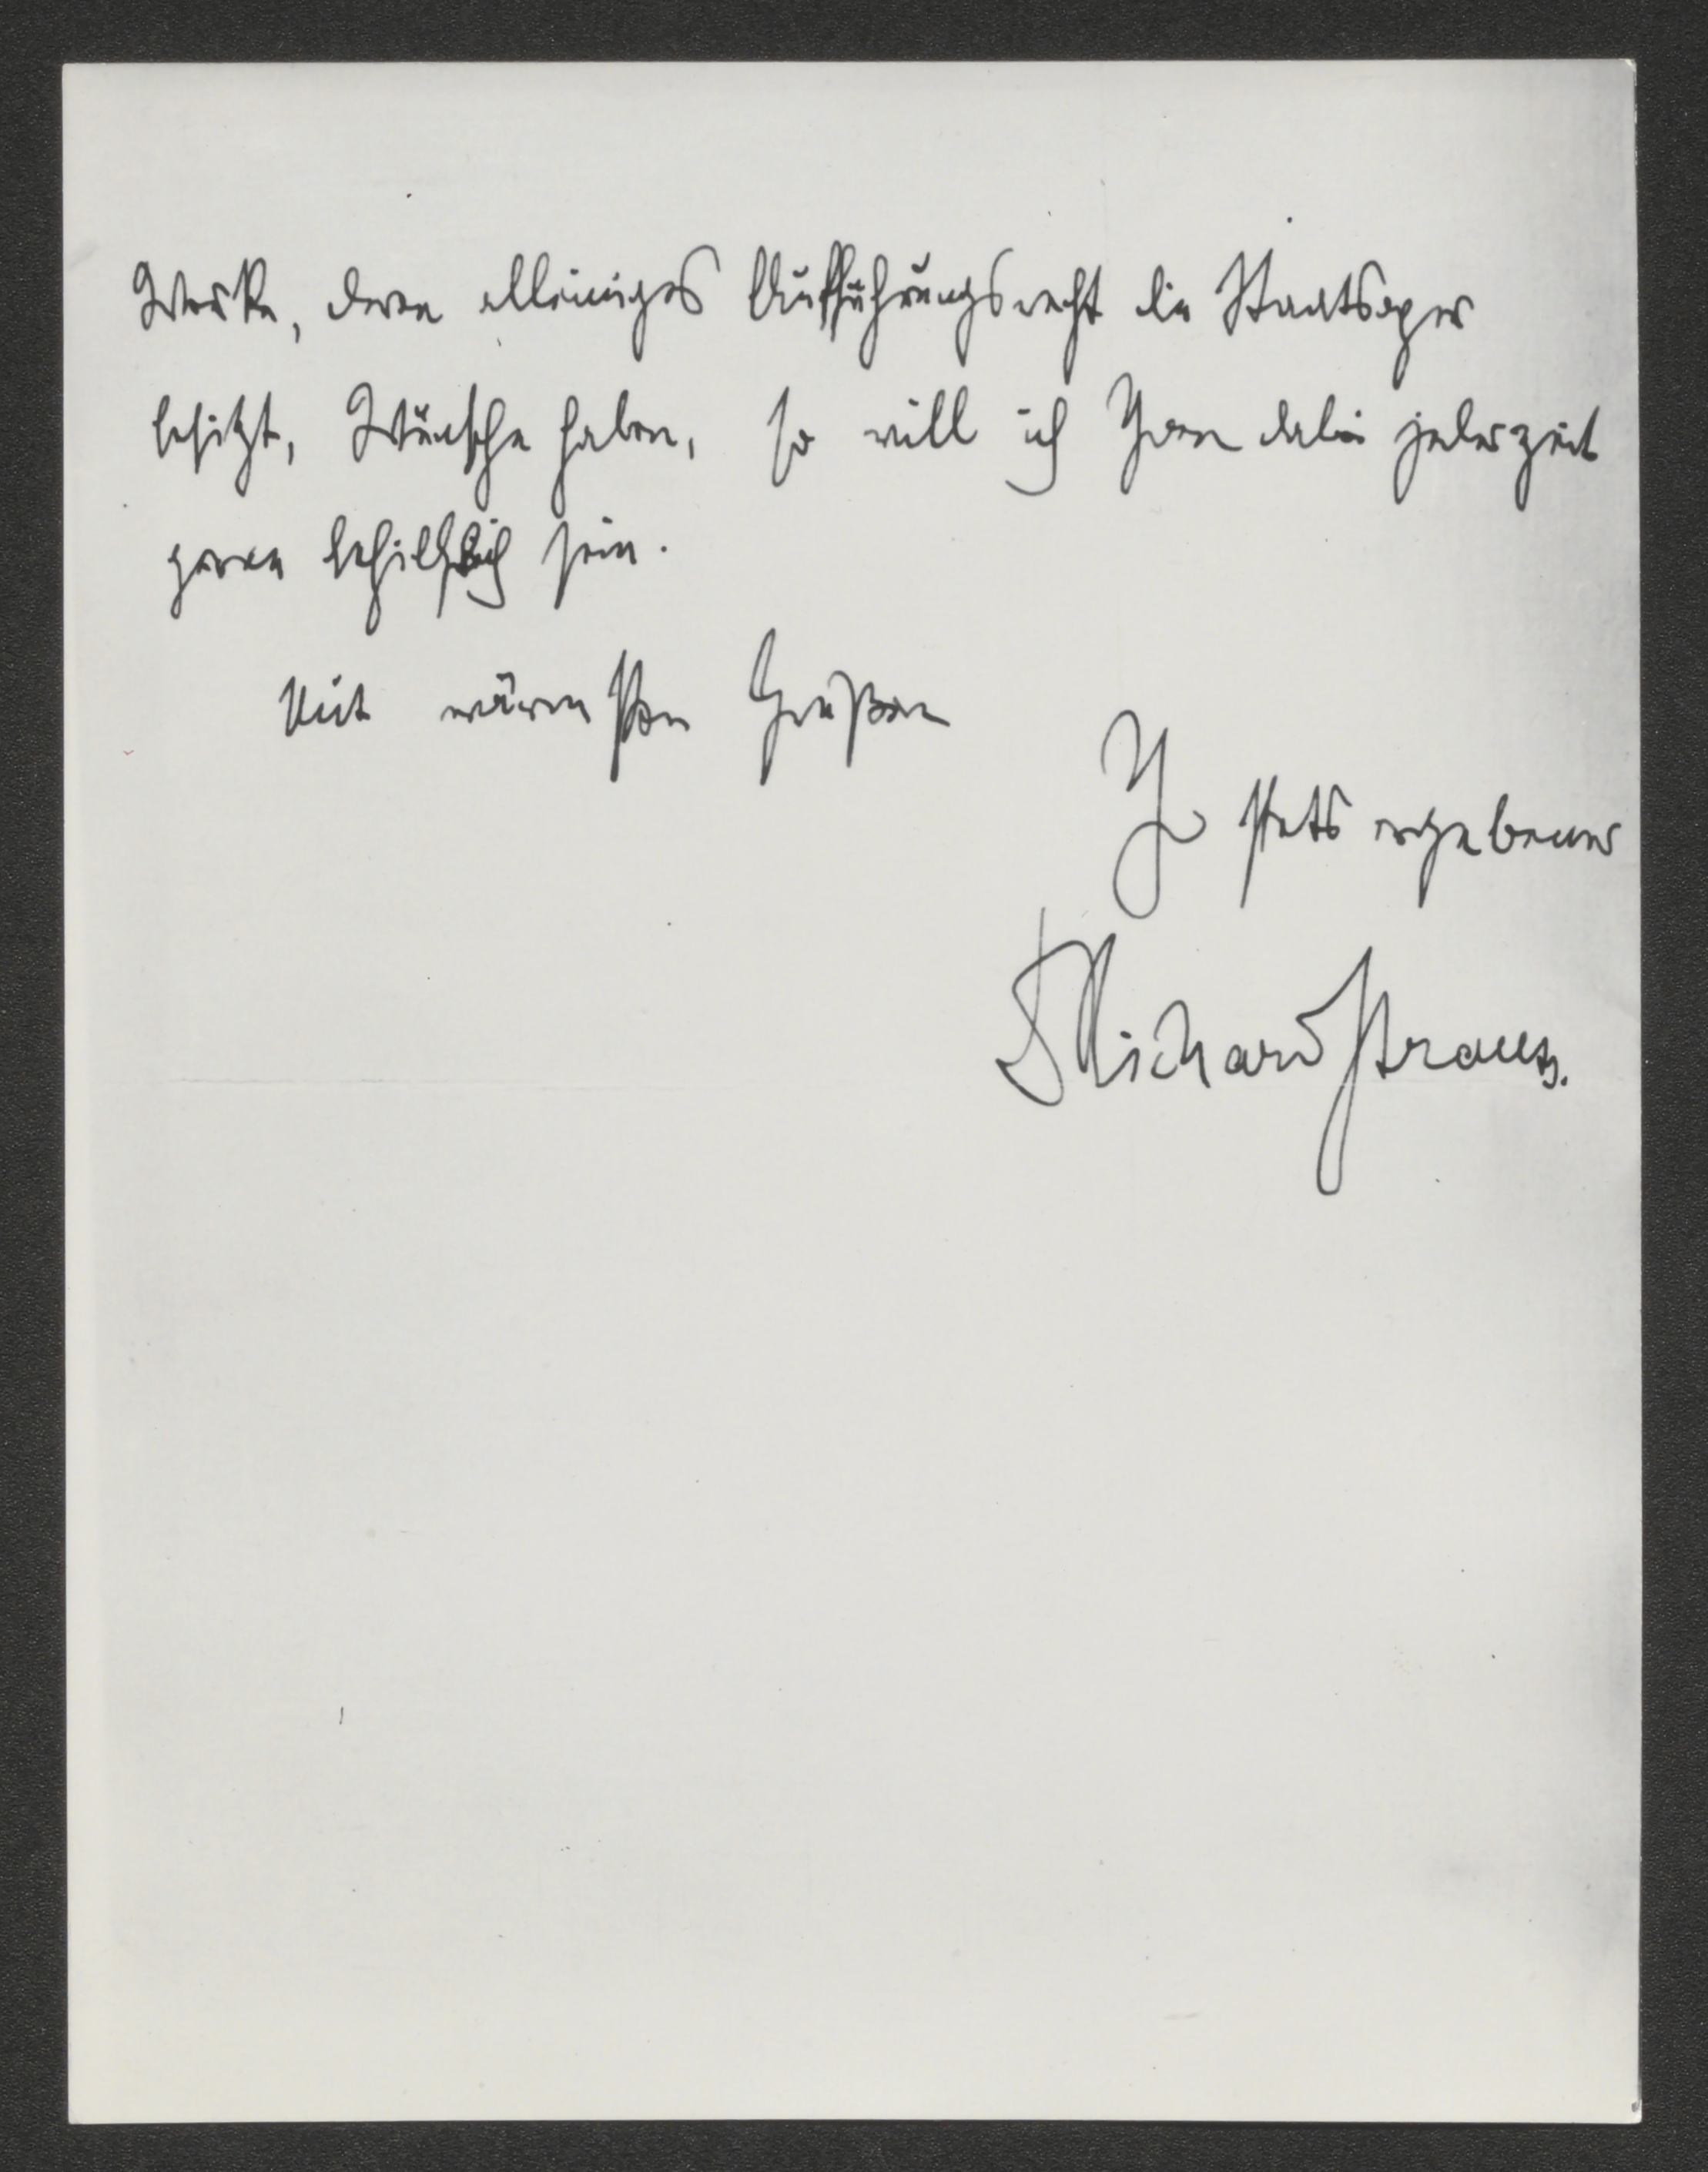 Werke, deren alleiniges Aufführungsrecht die Staatsoper
besitzt, Wünsche haben, so will ich Ihnen dabei jederzeit
gerne behilflich sein.
Mit wärmsten Grüßen
Ihr stets ergebener
DrRichardStrauss.